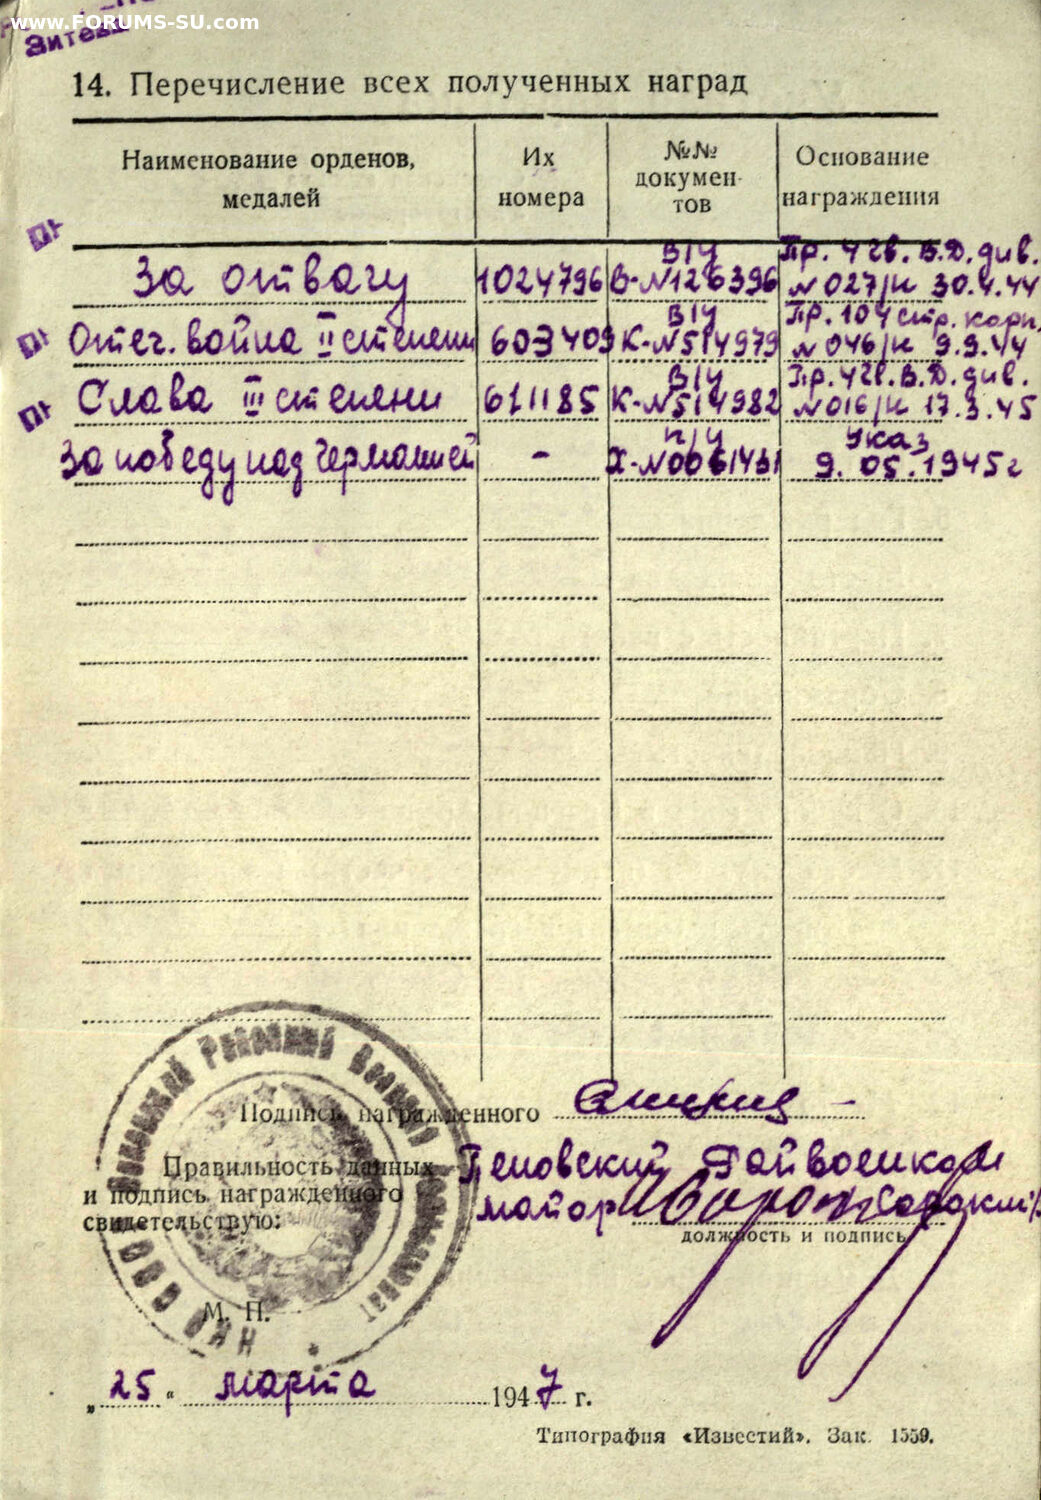 www.FORUMS-SU.com
14. Перечисление всех полученных наград
Наименование орденов, медалей
Их номера
№№ документов
Основание награждения
За отвагу 1024796 В/У В-№126396 Пр. 4 гв. В.Д. див. №027/н 30.4.44
Отеч. война II степени 603409 В/У К-№514979 Пр. 104 стр. корп. №046/н 9.9.44
Слава III степени 611185 В/У К-№514982 Пр. 4 гв. В.Д. див. №016/н 17.3.45
За победу над Германией - Х-№0061431 Указ 9.05.1945 г
Подпись награжденного
Правильность данных
и подпись награжденного
свидетельствую:
майор
должность и подпись
М. П.
НКО СССР
„25“ марта 1947 г.
Типография «Известий». Зак. 1559.